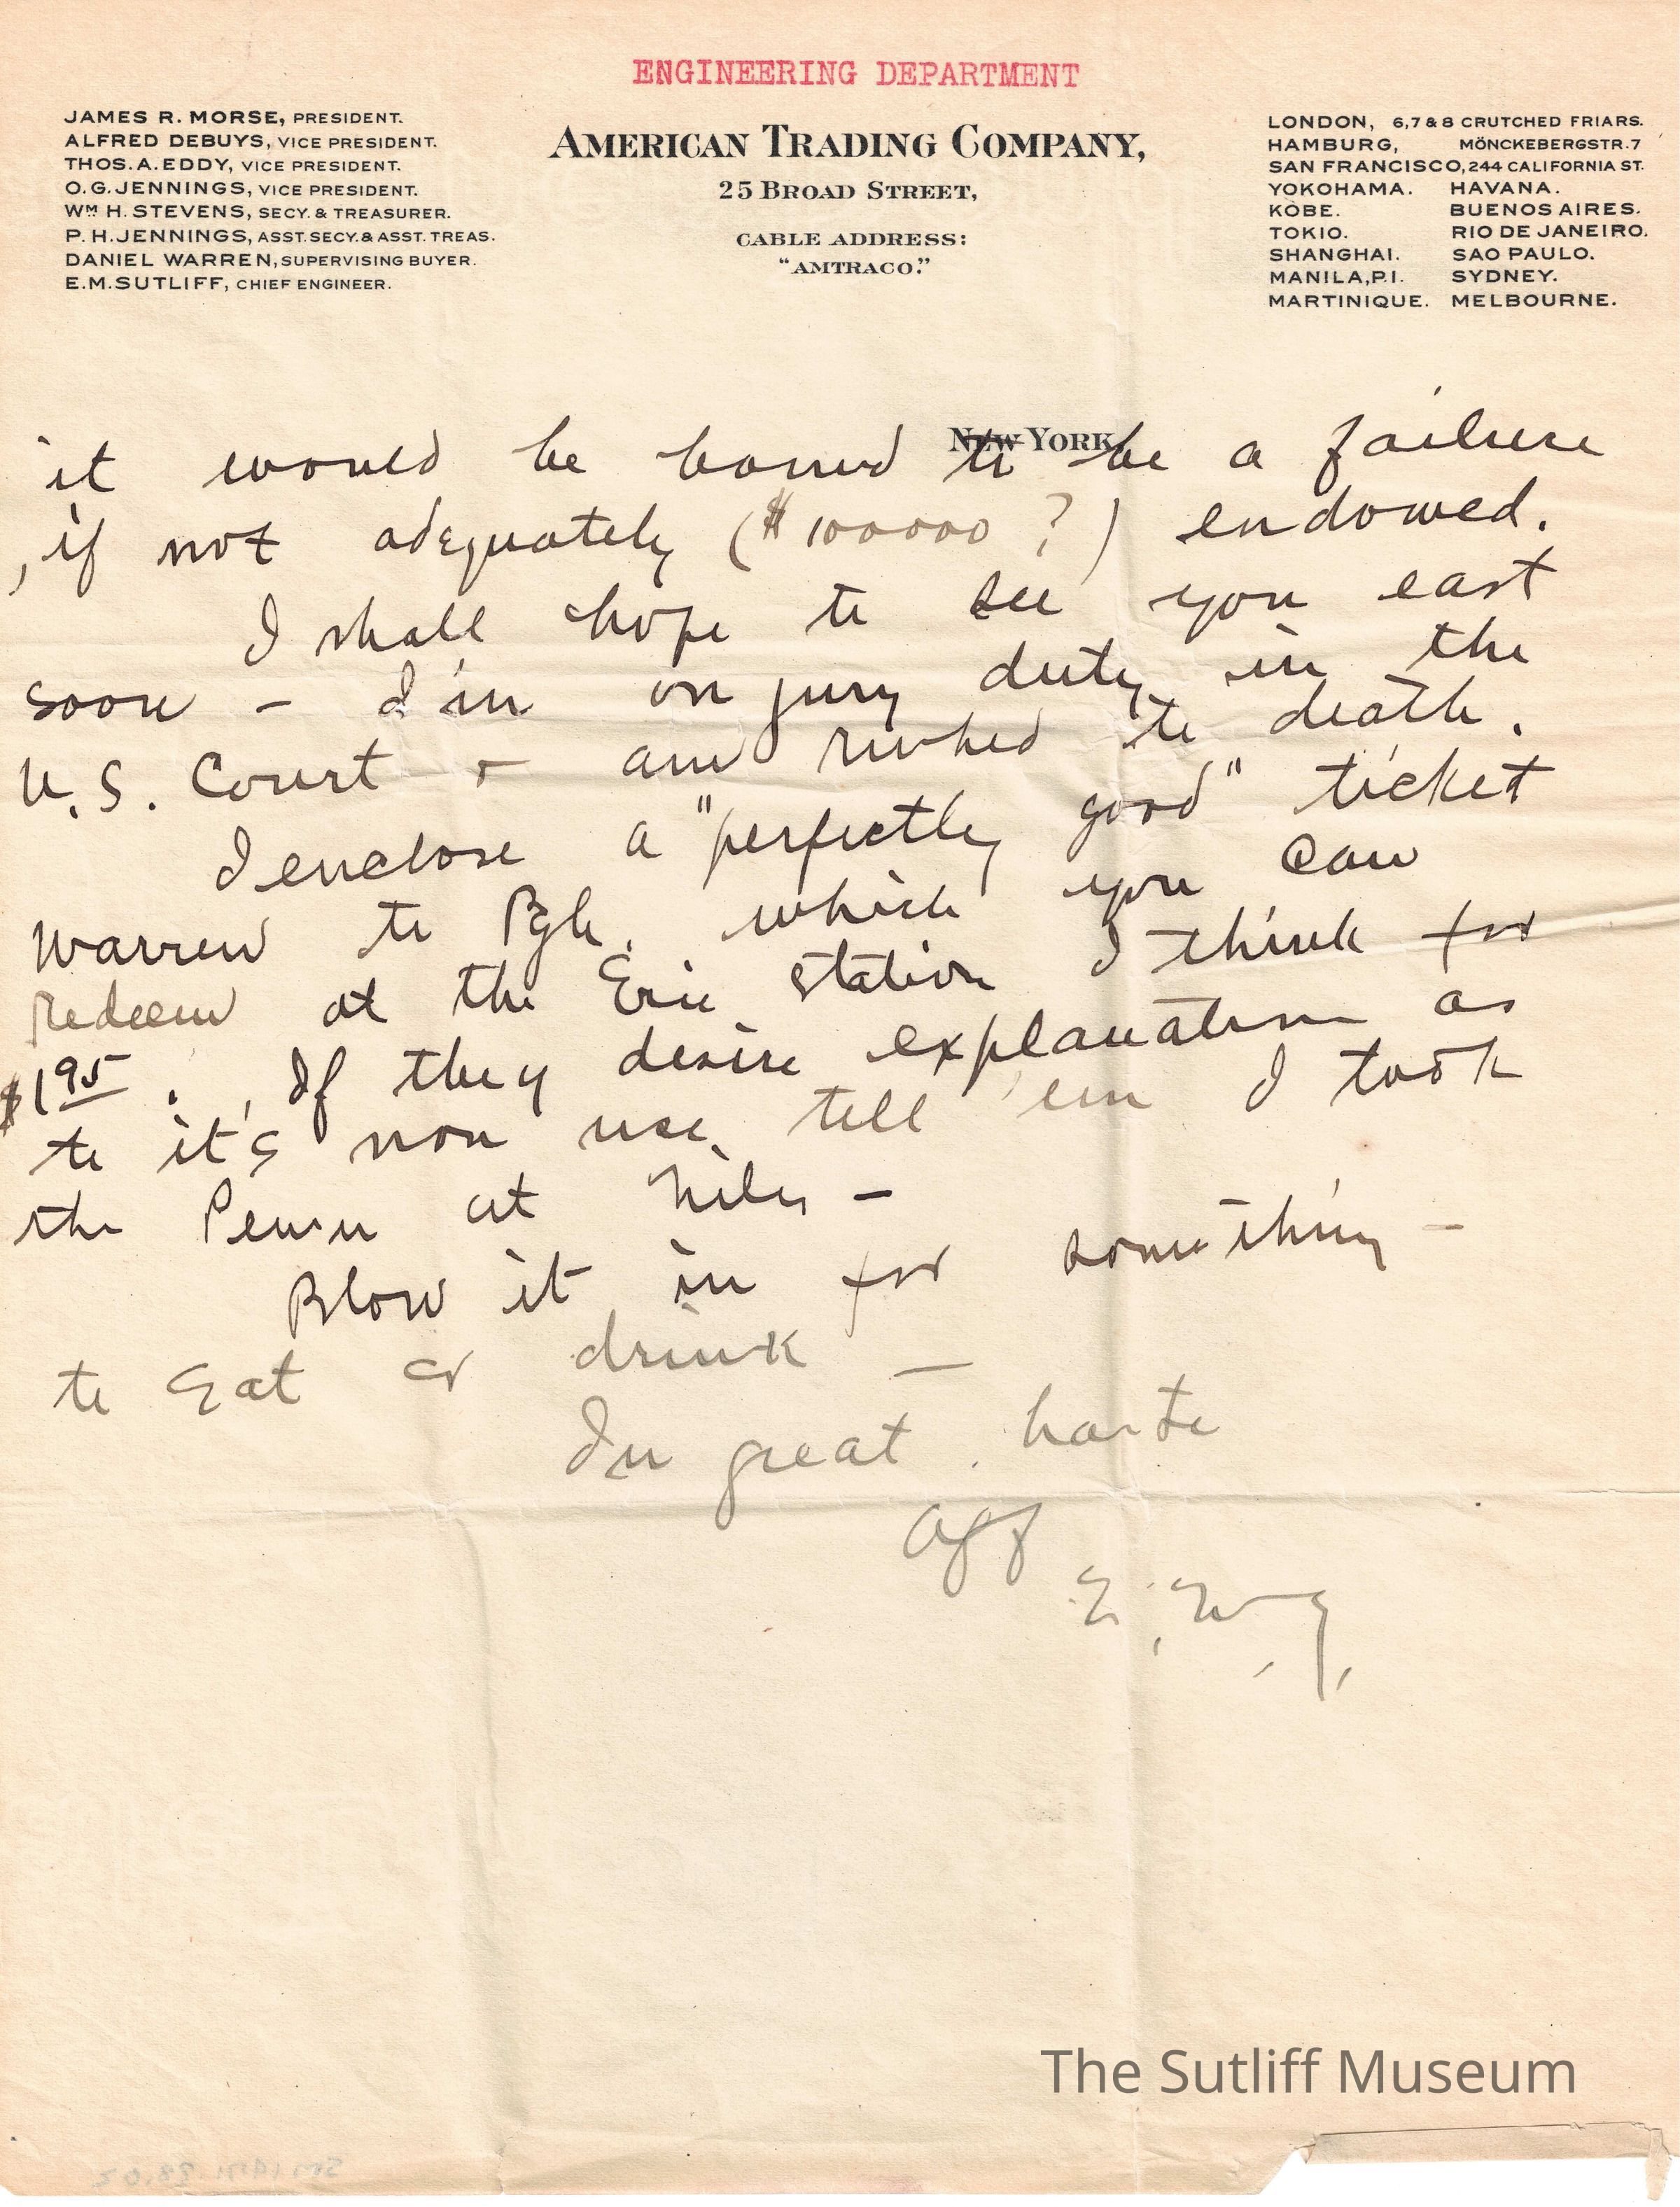 ENGINEERING DEPARTMENT
JAMES R. MORSE, PRESIDENT.
ALFRED DEBUYS, VICE PRESIDENT.
THOS. A. EDDY, VICE PRESIDENT.
O. G. JENNINGS, VICE PRESIDENT.
WM H. STEVENS, SECY. & TREASURER.
P. H. JENNINGS, ASST. SECY. & ASST. TREAS.
DANIEL WARREN, SUPERVISING BUYER.
E. M. SUTLIFF, CHIEF ENGINEER.
AMERICAN TRADING COMPANY,
25 BROAD STREET,
CABLE ADDRESS:
"AMTRACO."
LONDON, 6,7 & 8 CRUTCHED FRIARS.
HAMBURG, MÖNCKEBERGSTR. 7
SAN FRANCISCO, 244 CALIFORNIA ST.
YOKOHAMA. HAVANA.
KOBE. BUENOS AIRES.
TOKIO. RIO DE JANEIRO.
SHANGHAI. SAO PAULO.
MANILA, P.I. SYDNEY.
MARTINIQUE. MELBOURNE.
NEW YORK
it would be bound to be a failure
, if not adequately ($100000 ?) endowed.
I shall hope to see you east
soon – I'm on jury duty in the
U.S. Court + am rushed to death.
I enclose a "perfectly good" ticket
Warren to Pgh. which you can
redeem at the Erie station I think for
$1 95. If they desire explanation as
to it's non use, tell 'em I took
the Penn at Niles –
Blow it in for something –
to eat or drink –
In great haste
Aff
The Sutliff Museum